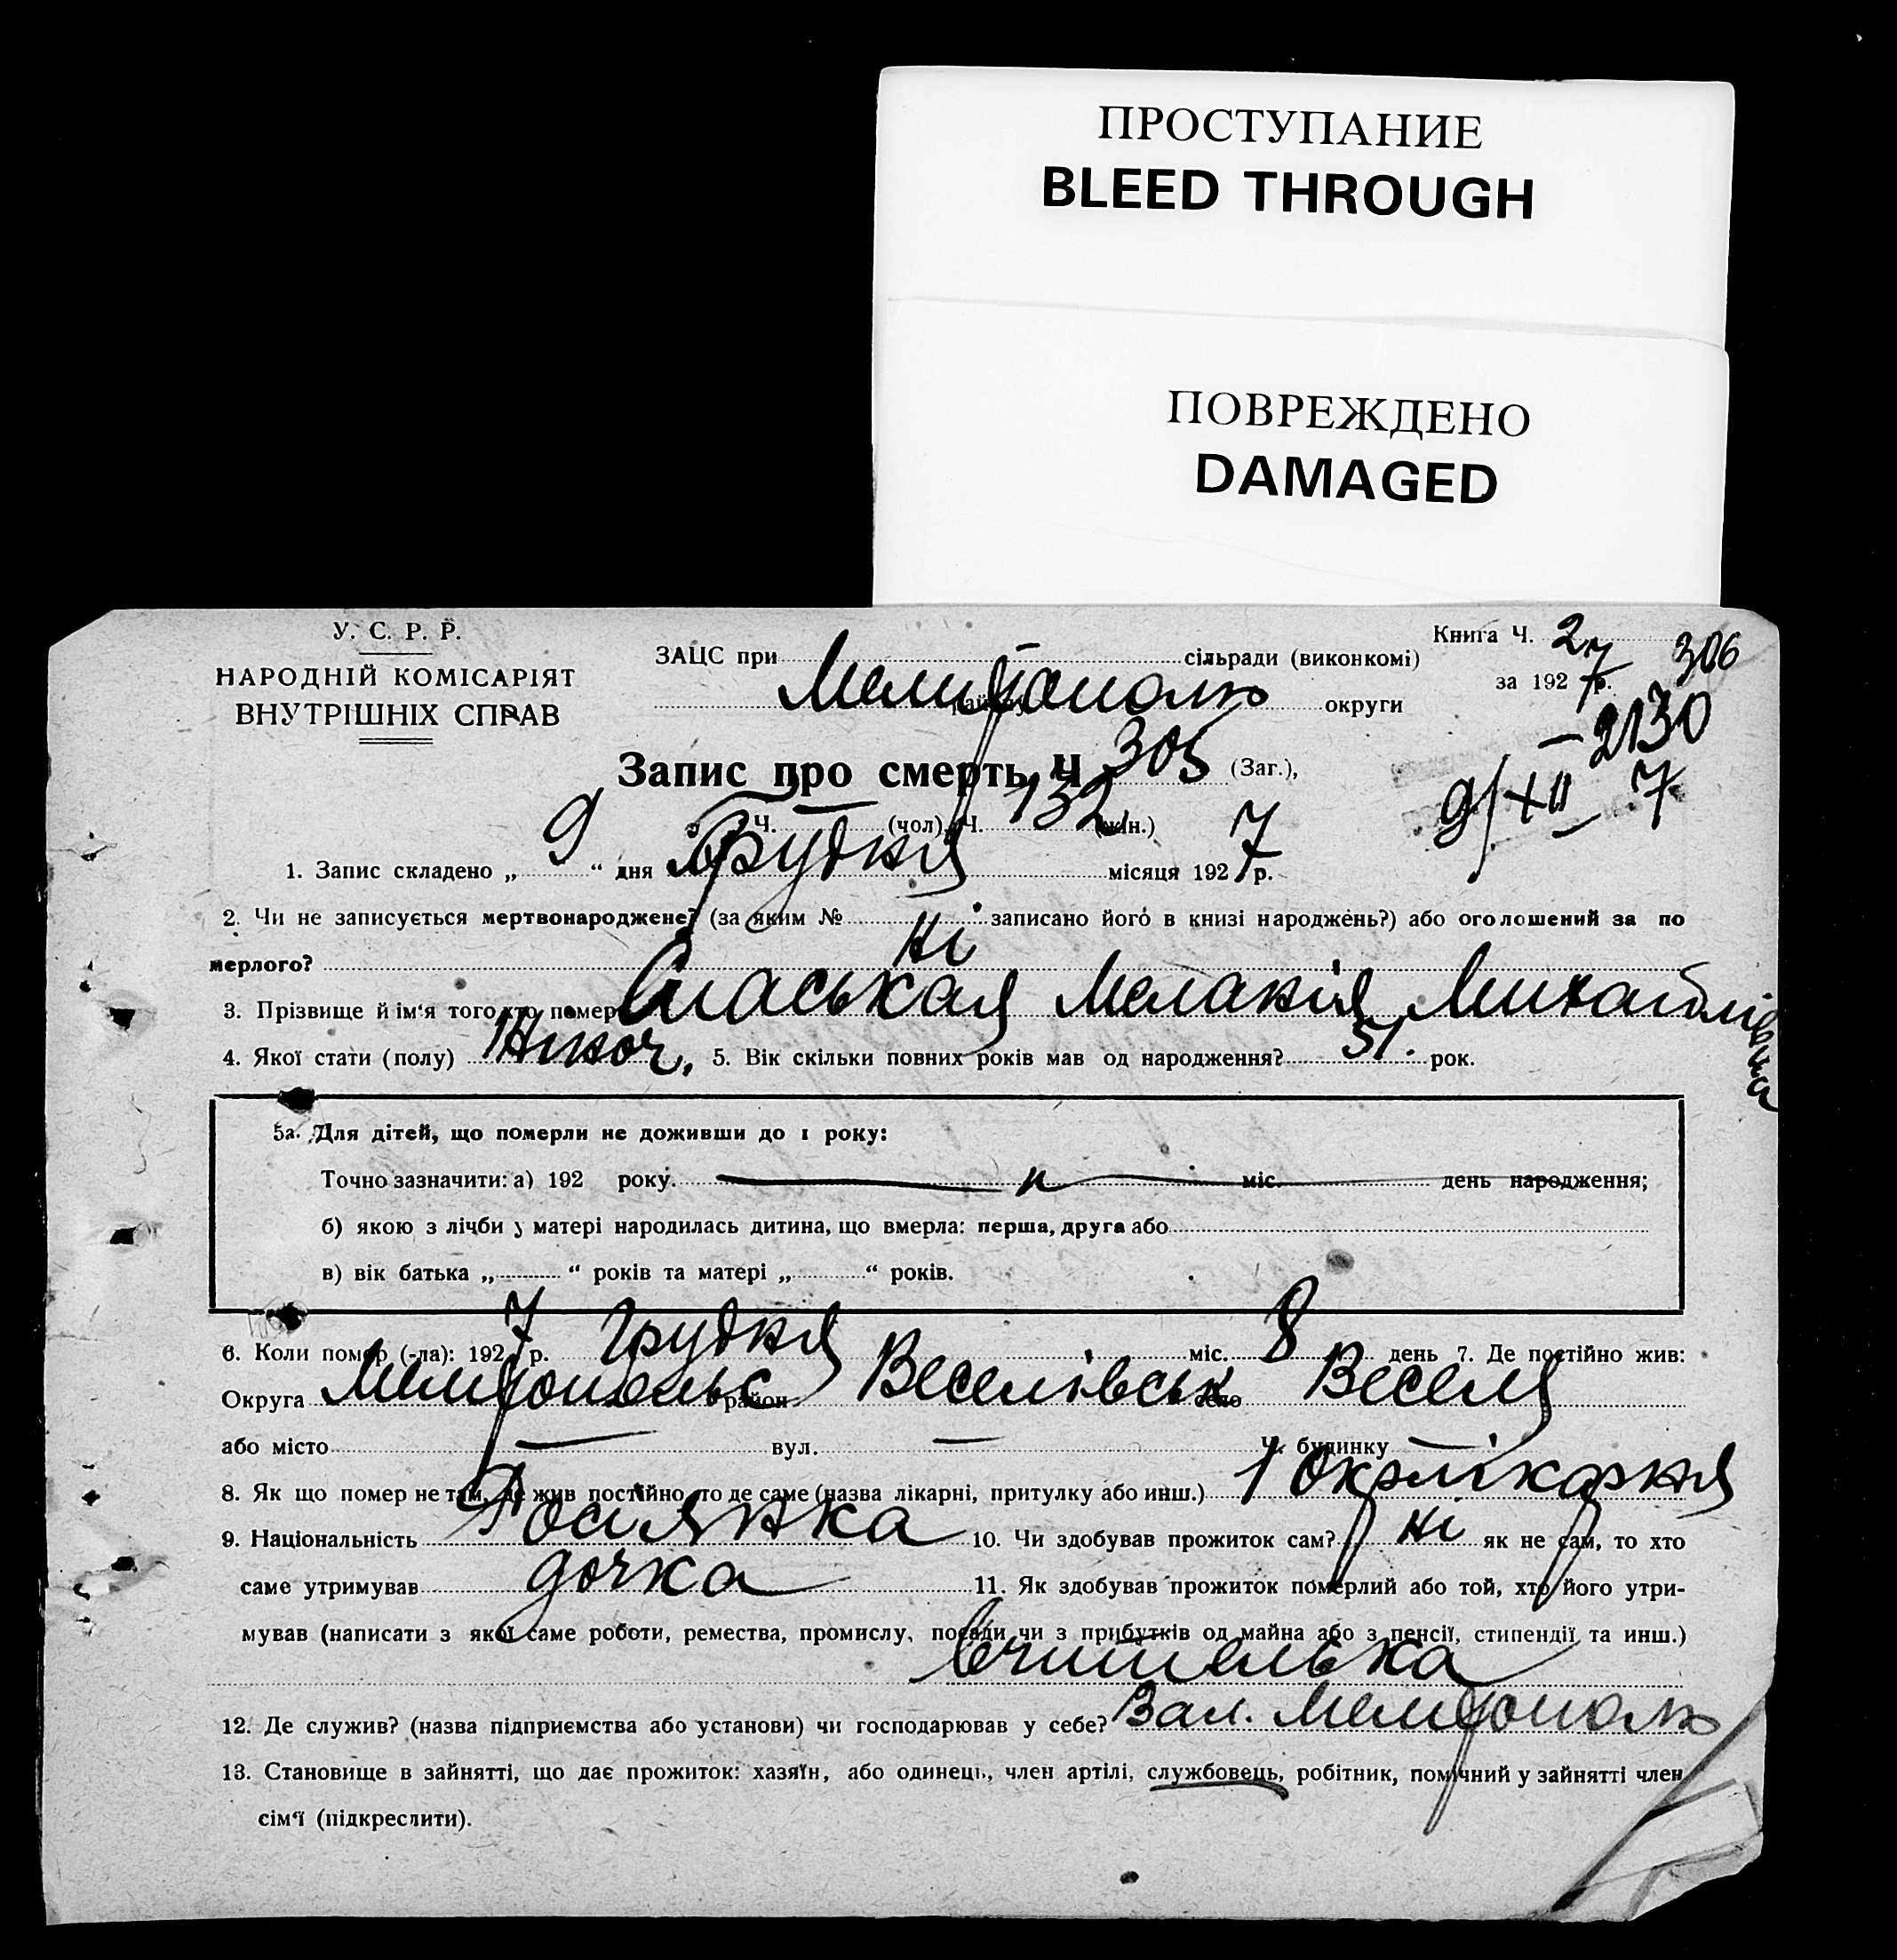 ПРОСТУПАНИЕ
BLEED THROUGH
ПОВРЕЖДЕНО
DAMAGED
У. С. Р. Р.
НАРОДНІЙ КОМІСАРІЯТ
ВНУТРІШНІХ СПРАВ
Книга Ч. 27
за 1927 р.
306
ЗАЦС при сільради (виконкомі)
Мелитополь району округи
2130
Запис про смерть Ч 305 (Заг.),
Ч. (чол), Ч. 132 (жін.)
9/XII 7
1. Запис складено „ 9 “ дня Грудня місяця 1927 р.
2. Чи не записується мертвонароджене? (за яким № записано його в книзі народжень?) або оголошений за по
мерлого? Ні
3. Прізвище й ім'я того хто помер Спаськая Меланія Михайлівна
4. Якої стати (полу) Жіноч. 5. Вік скільки повних років мав од народження? 51. рок.
5а. Для дітей, що померли не доживши до 1 року:
Точно зазначити: а) 192 року. міс. день народження;
б) якою з лічби у матері народилась дитина, що вмерла: перша, друга або
в) вік батька „ “ років та матері „ “ років.
6. Коли помер (-ла): 1927 р. Грудня міс. 8 день 7. Де постійно жив:
Округа Мелитопольс район Веселівськ село Веселе
або місто — вул. — Ч. будинку —
8. Як що помер не там, де жив постійно, то де саме (назва лікарні, притулку або инш.) 1 Окрлікарня
9. Національність Росіянка 10. Чи здобував прожиток сам? Ні як не сам, то хто
саме утримував дочка 11. Як здобував прожиток померлий або той, хто його утри-
мував (написати з якої саме роботи, ремества, промислу, посади чи з прибутків од майна або з пенсії, стипендії та инш.)
Вчителька
12. Де служив? (назва підприємства або установи) чи господарював у себе? Зал. Мелитополь
13. Становище в зайнятті, що дає прожиток: хазяїн, або одинець, член артілі, службовець, робітник, помічний у зайнятті член
сім'ї (підкреслити).